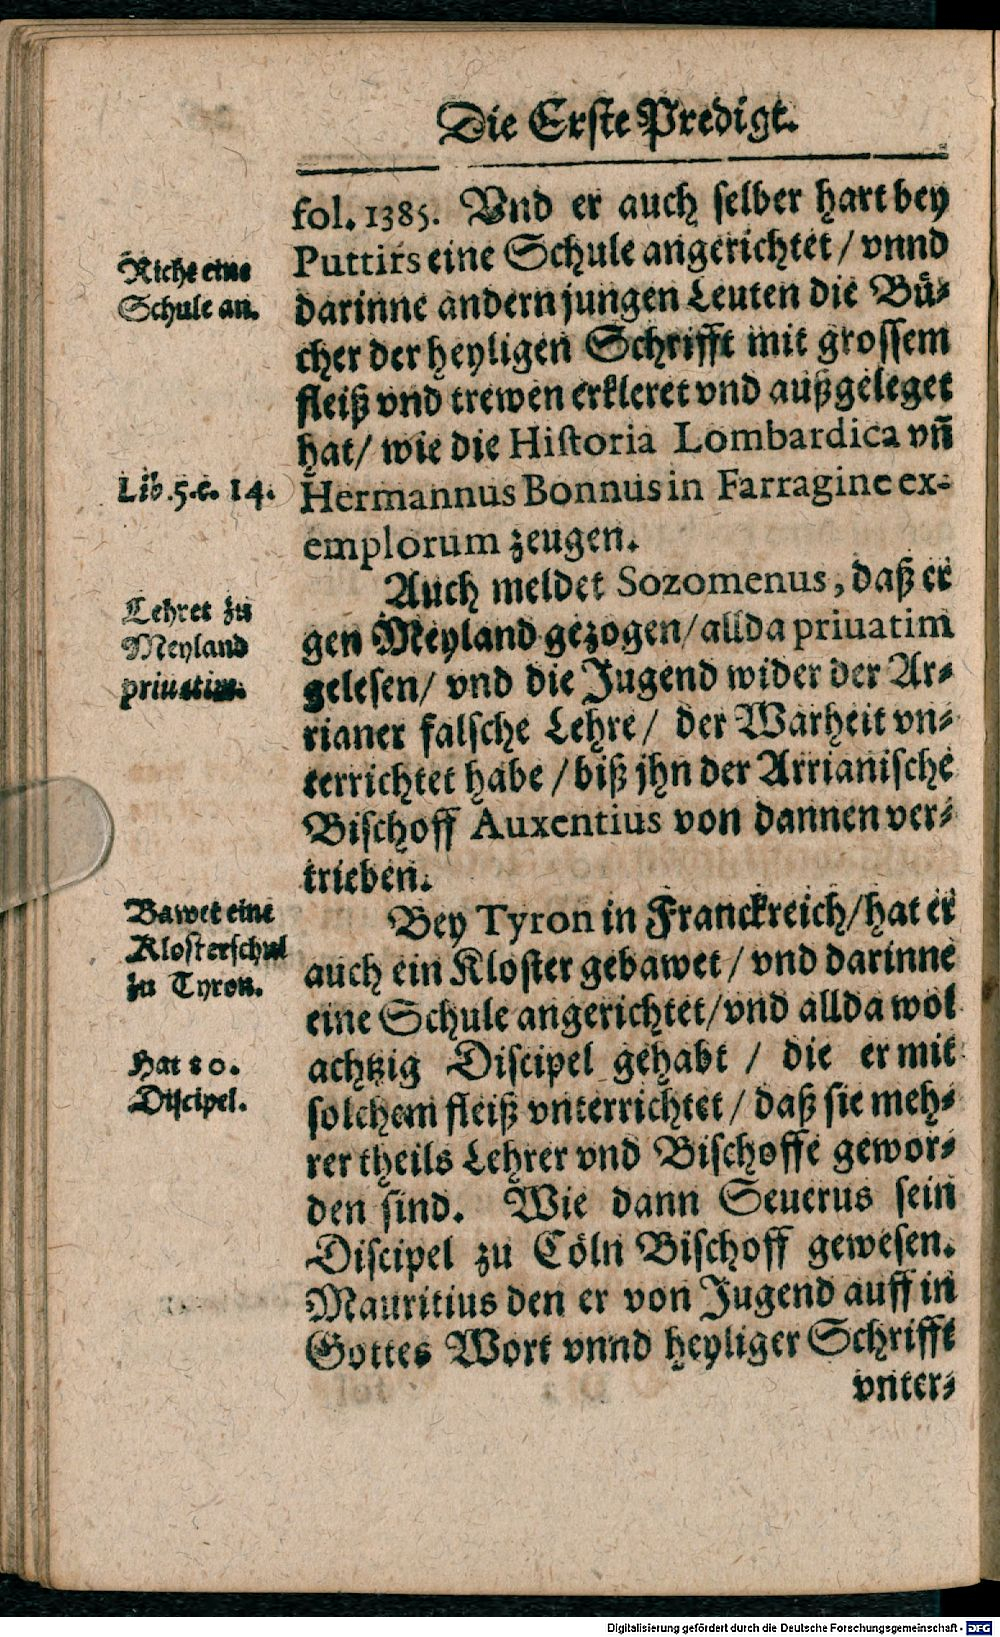 Die Erste Predigt.
fol. 1385. Vnd er auch selber hart bey
Puttirs eine Schule angerichtet / vnnd
Richt eine
Schule an.
darinne andern jungen Leuten die Bü-
cher der heyligen Schrifft mit grossem
fleiß vnd trewen erkleret vnd außgeleget
hat / wie die Historia Lombardica vñ
Lib. 5. c. 14.
Hermannus Bonnus in Farragine ex-
emplorum zeugen.
Auch meldet Sozomenus, daß er
Lehret zu
Meyland
priuatim.
gen Meyland gezogen / allda priuatim
gelesen / vnd die Jugend wider der Ar-
rianer falsche Lehre / der Warheit vn-
terrichtet habe / biß jhn der Arrianische
Bischoff Auxentius von dannen ver-
trieben.
Bawet eine
Klosterschul
zu Tyron.
Bey Tyron in Franckreich / hat er
auch ein Kloster gebawet / vnd darinne
eine Schule angerichtet / vnd allda wol
Hat 80.
Discipel.
achtzig Discipel gehabt / die er mit
solchem fleiß vnterrichtet / daß sie meh-
rer theils Lehrer vnd Bischoffe gewor-
den sind. Wie dann Seuerus sein
Discipel zu Cöln Bischoff gewesen.
Mauritius den er von Jugend auff in
Gottes Wort vnnd heyliger Schrifft
vnter-
Digitalisierung gefördert durch die Deutsche Forschungsgemeinschaft - DFG